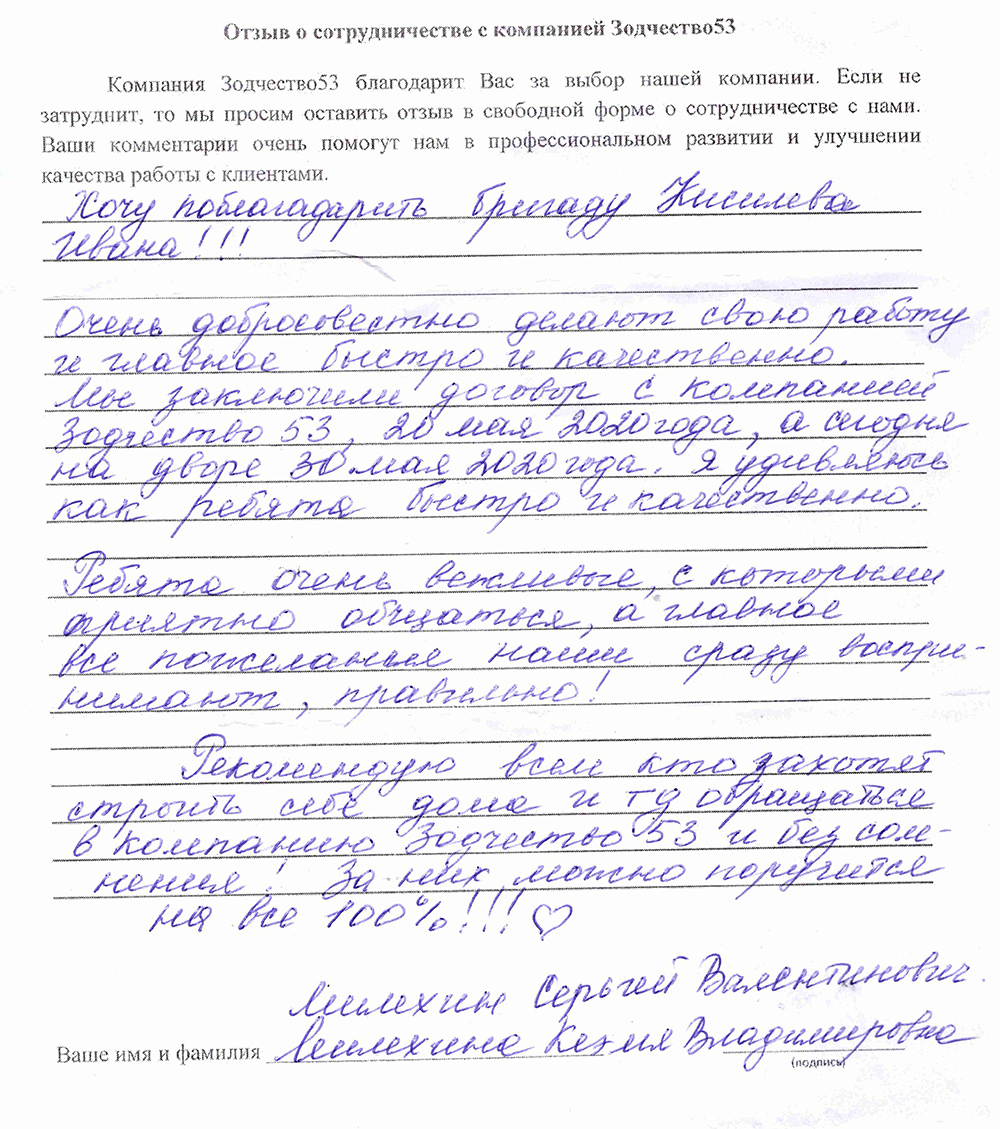 Отзыв о сотрудничестве с компанией Зодчество53
Компания Зодчество53 благодарит Вас за выбор нашей компании. Если не
затруднит, то мы просим оставить отзыв в свободной форме о сотрудничестве с нами.
Ваши комментарии очень помогут нам в профессиональном развитии и улучшении
качества работы с клиентами.
Хочу поблагадарить бригаду Кисилева
Ивана!!!
Очень добросовестно делают свою работу
и главное быстро и качественно.
Мы заключили договор с компанией
Зодчество 53, 20 мая 2020 года, а сегодня
на дворе 30 мая 2020 года. Я удивляюсь
как ребята быстро и качественно.
Ребята очень вежливые, с которыми
приятно общаться, а главное
все пожелания наши сразу воспри-
нимают, правильно!
Рекомендую всем кто захотят
строить себе дома и тд обращаться
в компанию Зодчество 53 и без сом-
нения! За них можно поручится
на все 100%!!! ♡
Милехин Сергей Валентинович.
Ваше имя и фамилия Милехина Владимировна
(подпись)